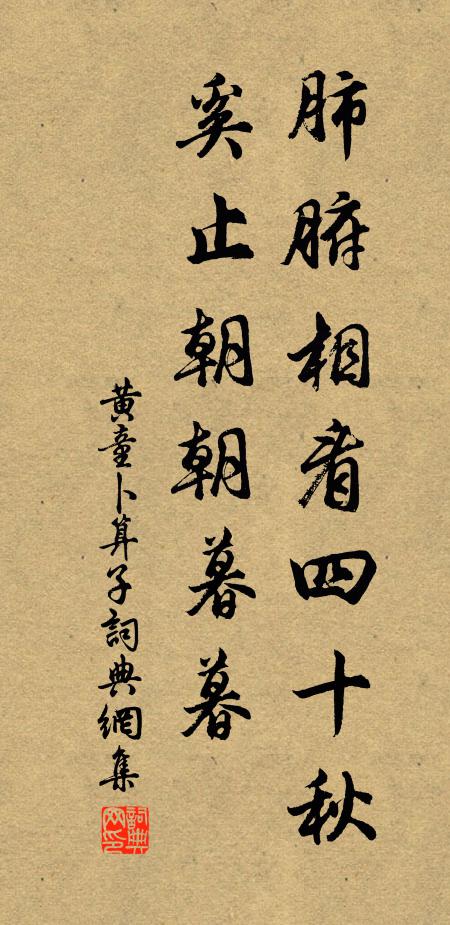 肺腑相看四十秋
奚止朝朝暮暮
黄童卜算子詞典網集
詞典网印